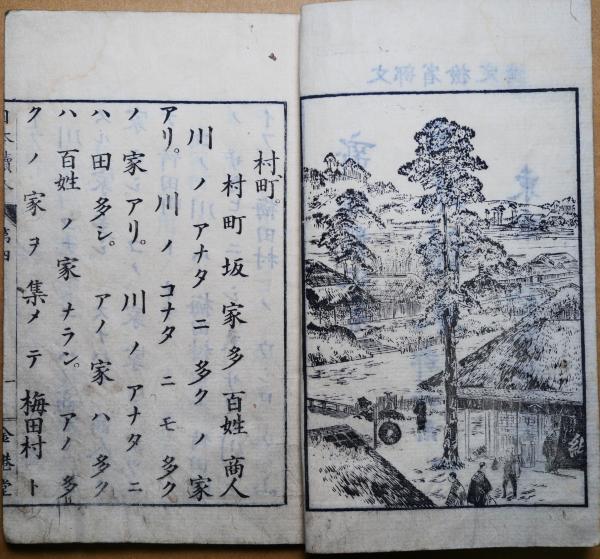 村町。
村町坂家多百姓商人
川ノアナタニ多クノ家
アリ。川ノコナタニモ多ク
ノ家アリ。川ノアナタニ
ハ田多シ。アノ家ハ多ク
ハ百姓ノ家ナラン。アノ多
クノ家ヲ集メテ梅田村ト
第四 一 金港堂